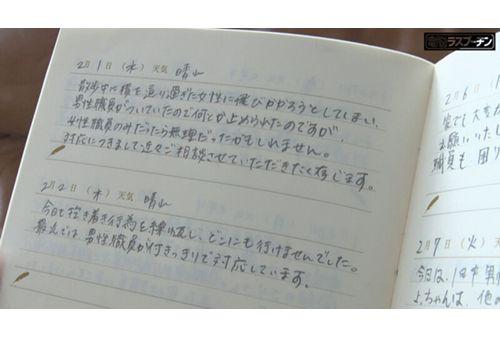 2月1日(水)天気 晴れ
散歩中に横を通り過ぎた女性に飛びかかろうとしてしまい、
男性職員がついていたので何とか止められたのですが、
女性職員のみだったら無理だったかもしれません。
対応につきまして近々ご相談させていただきたく存じます。
2月2日(木)天気 晴れ
今日も抱き着き行為を繰り返し、どこにも行けませんでした。
最近では、男性職員が付きっきりで対応しています。
2月6日(
家でも大変
お願いいた
職員も困り
2月7日(火)天
今日は、1日中男
ちゃんは、他の
電応ラスプーチン